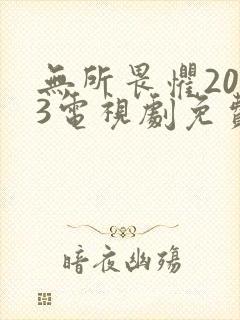 無所畏懼20
3電視劇免費
暗夜幽殤